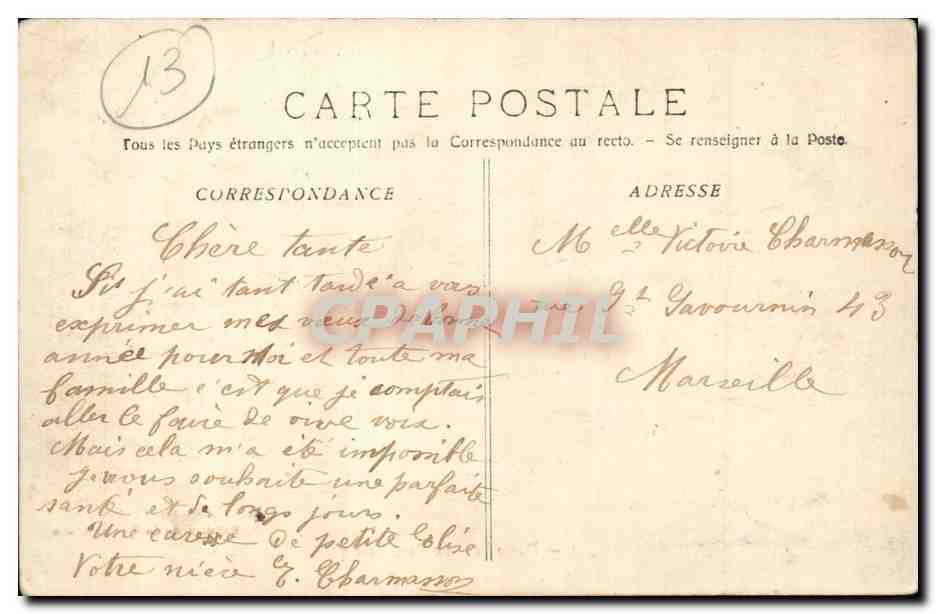 13
CARTE POSTALE
Tous les Pays étrangers n'acceptent pas la Correspondance au recto. - Se renseigner à la Poste.
CORRESPONDANCE
ADRESSE
Chère tante
Si j'ai tant tardé a vous
exprimer mes vœux de bonne
année pour moi et toute ma
famille c'est que je comptais
aller le faire de vive voix.
Mais cela m'a été impossible
Je vous souhaite une parfaite
santé et de longs jours.
Une caresse de petite Elise
Votre nièce E. Charmasson
Melle Victoire Charmasson
rue St Savournin 43
Marseille
CPAPHIL